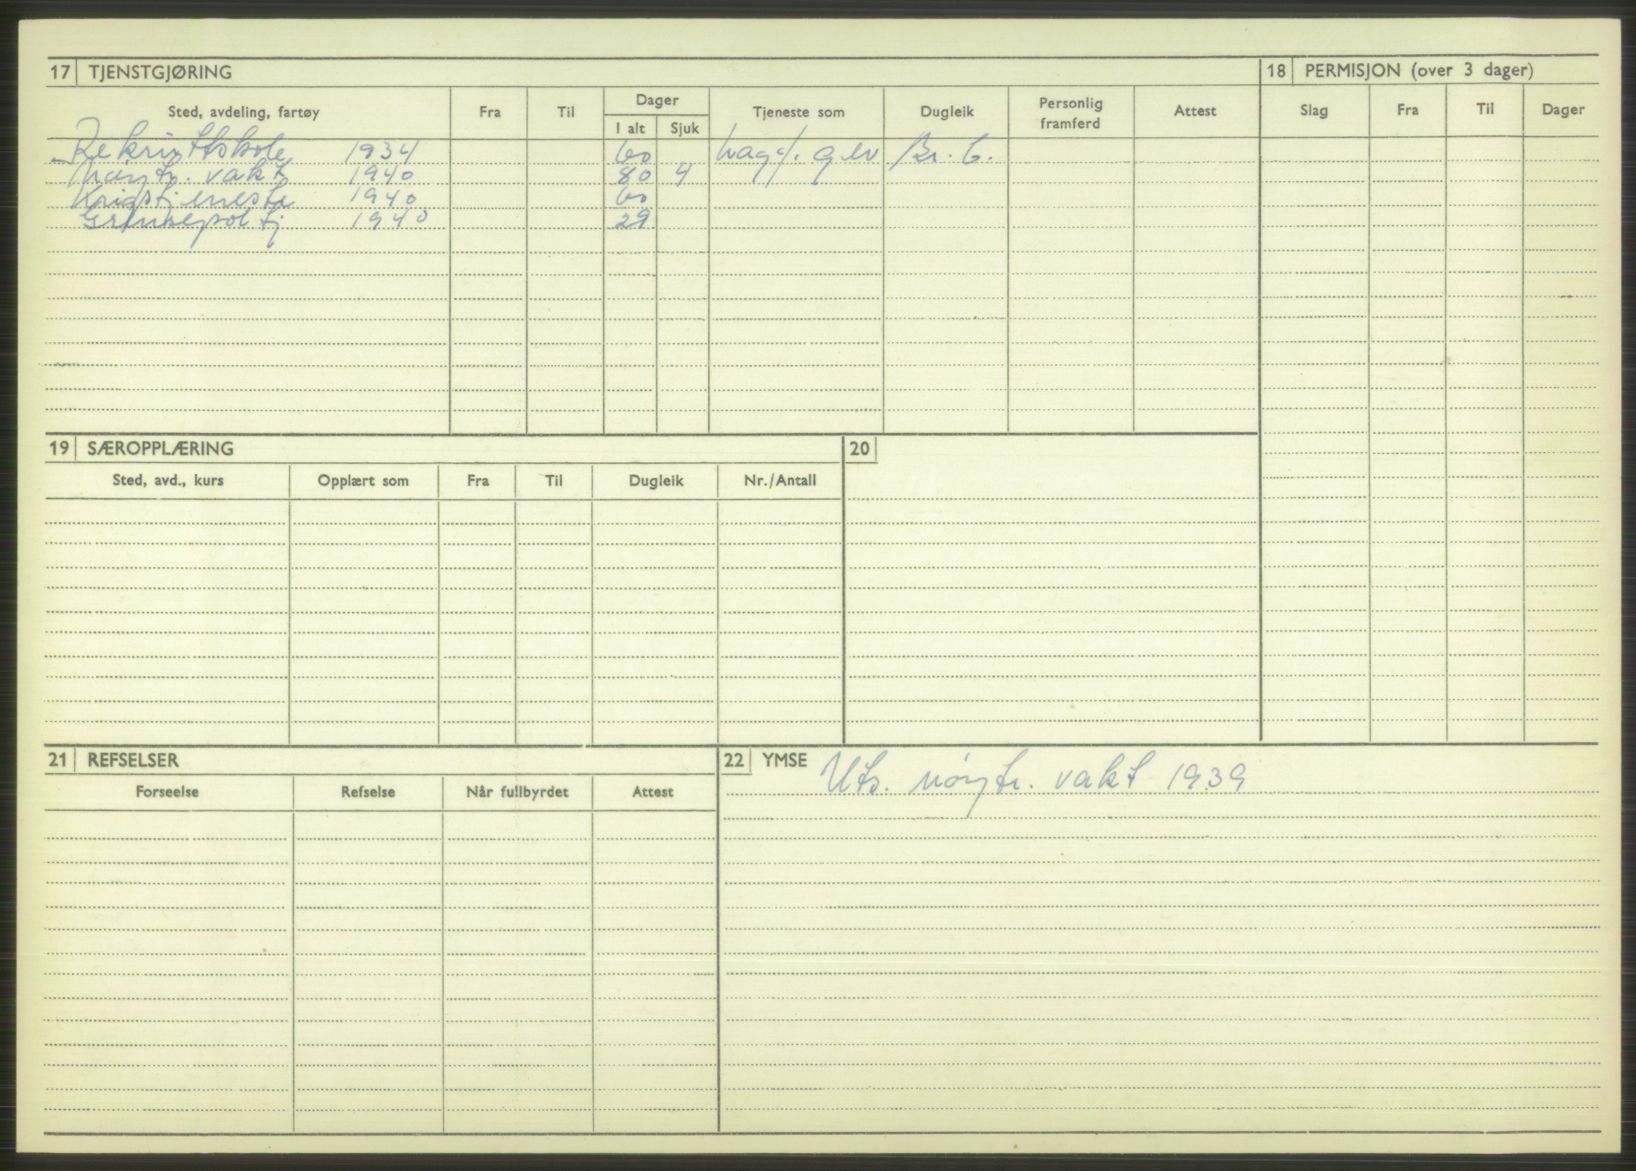 17 TJENSTGJØRING
18 PERMISJON (over 3 dager)
Sted, avdeling, fartøy Fra Til Dager Tjeneste som Dugleik Personlig framferd Attest Slag Fra Til Dager
I alt Sjuk
Rekruttskole 1934 60 elev Br. b.
Nøytr. vakt 1940 80 4
Krigstjeneste 1940 60
Grensepoliti 1940 29
19 SÆROPPLÆRING
20
Sted, avd., kurs Opplært som Fra Til Dugleik Nr./Antall
21 REFSELSER
22 YMSE Uts. nøytr. vakt 1939
Forseelse Refselse Når fullbyrdet Attest